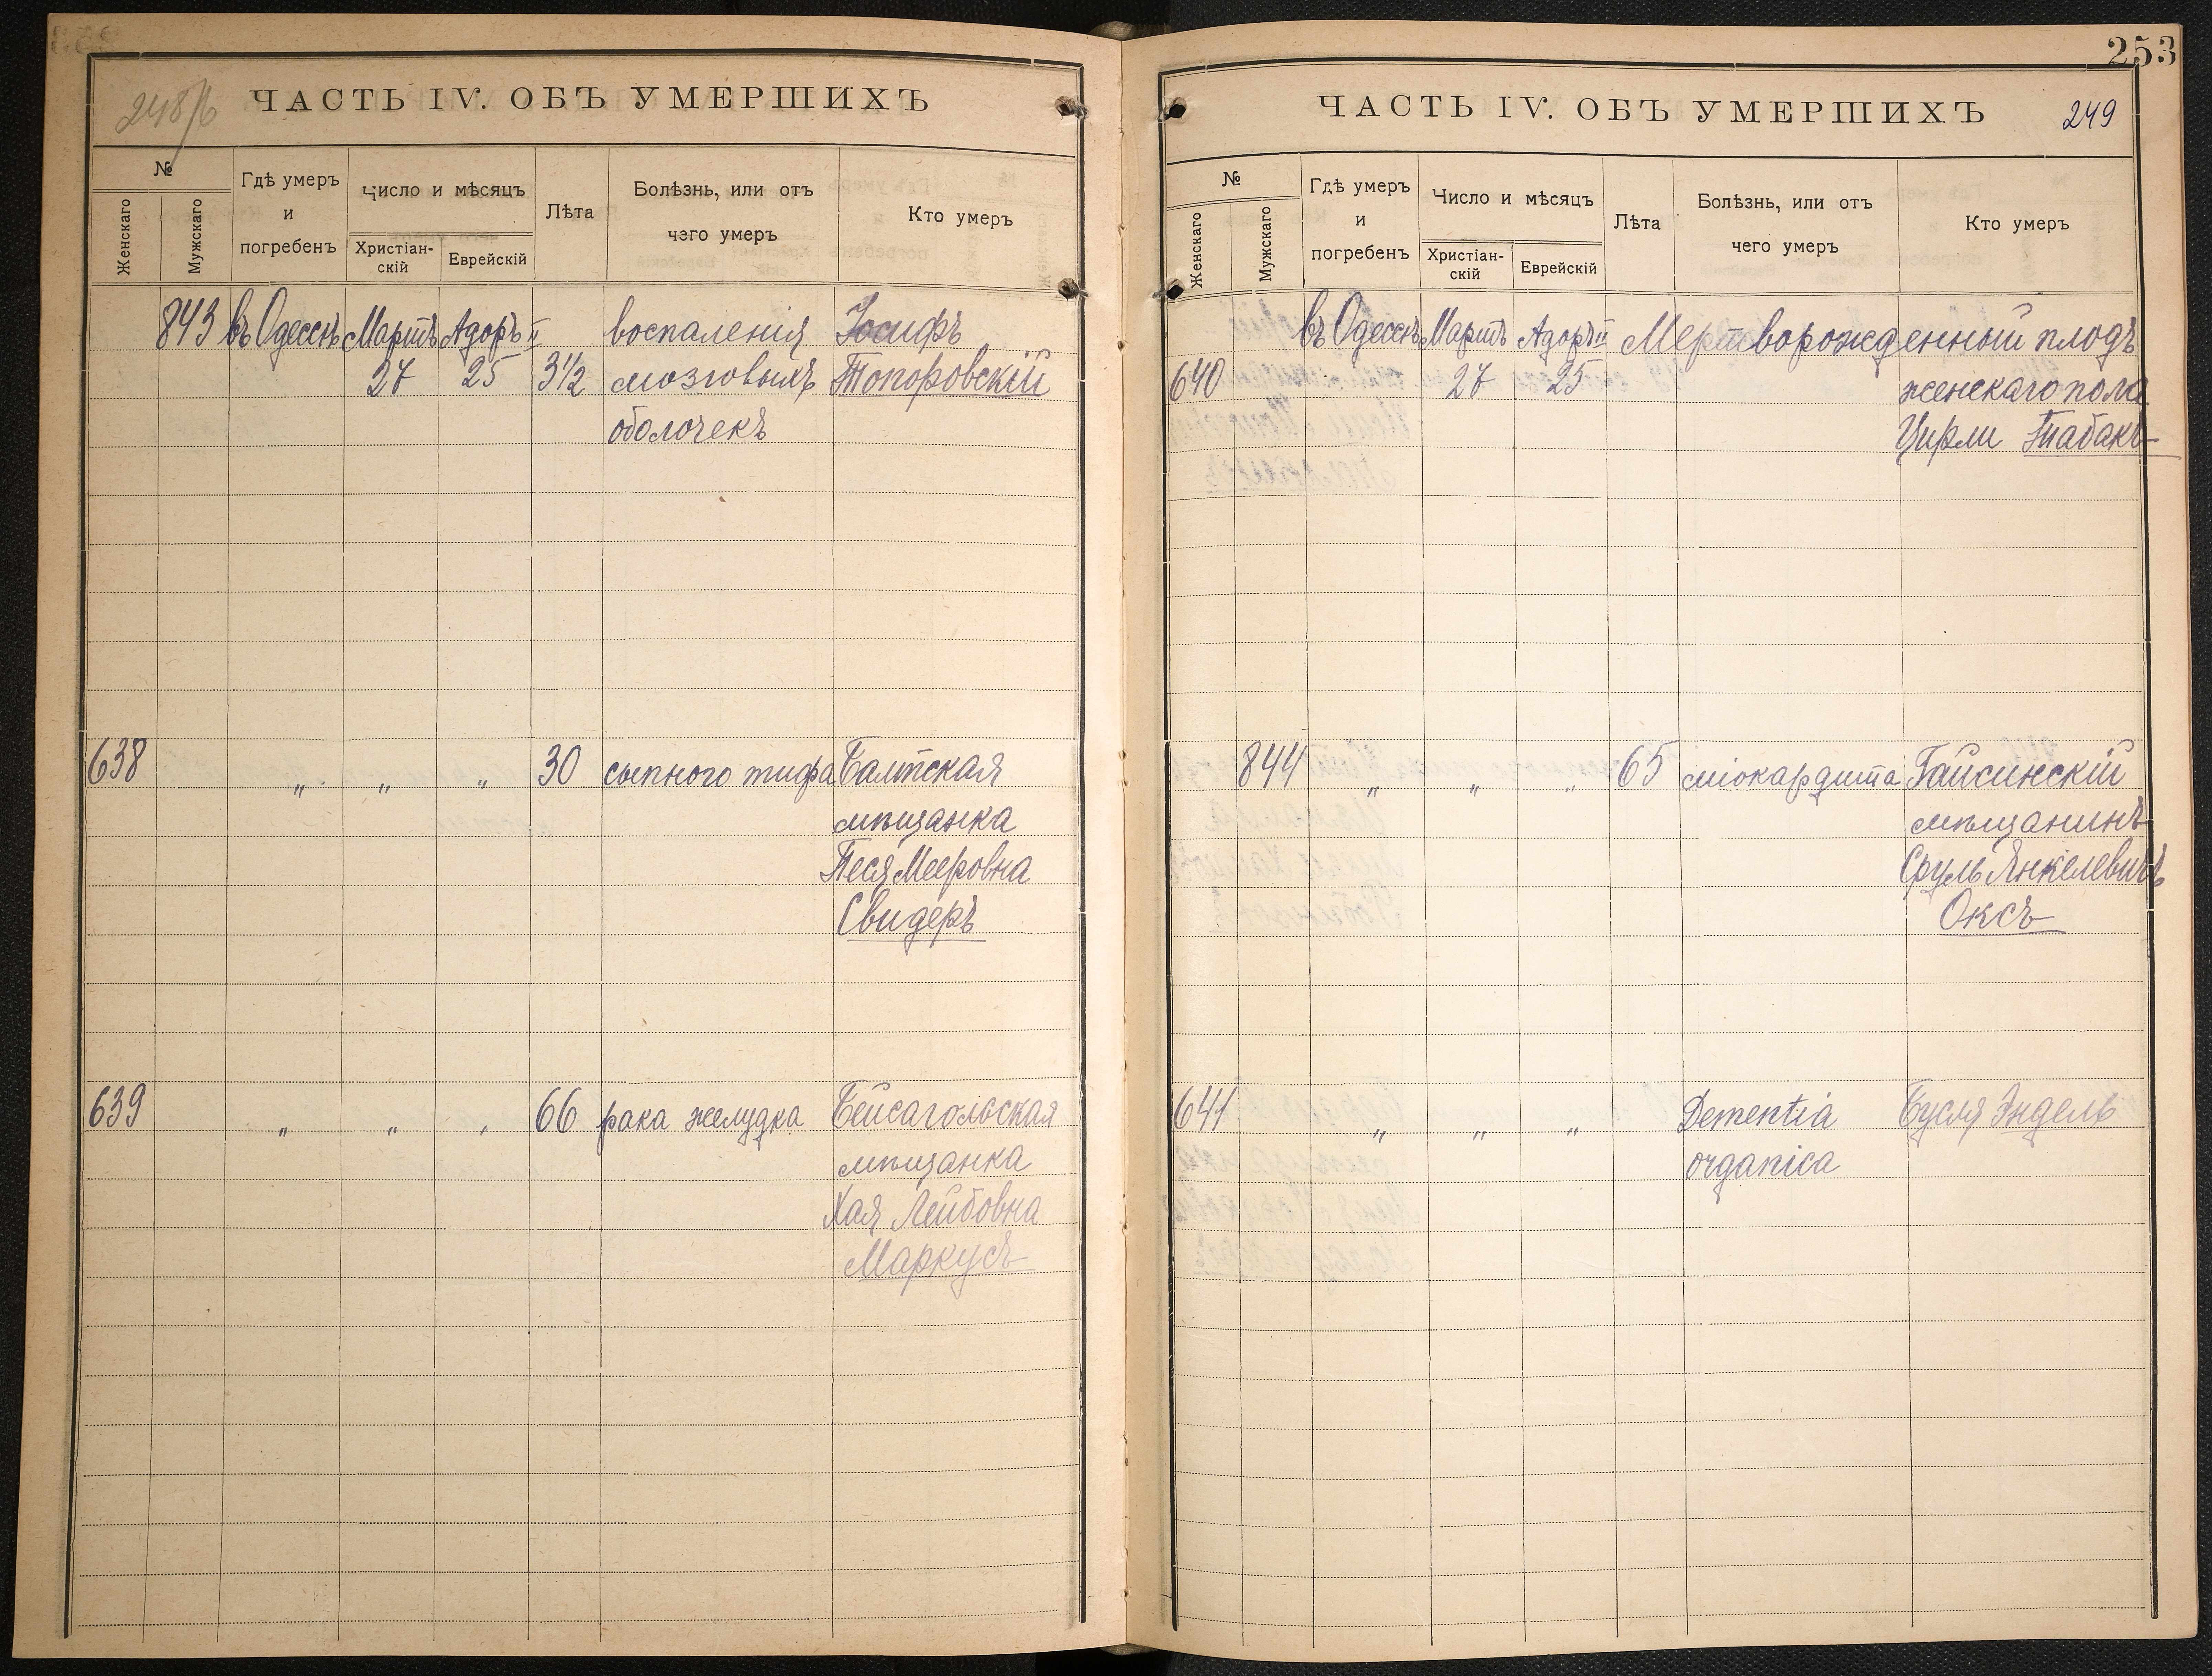 248/б
ЧАСТЬ IV. ОБЪ УМЕРШИХЪ
№
Женскаго
Мужскаго
Гдѣ умеръ
и
погребенъ
Число и мѣсяцъ
Христіан-
скій
Еврейскій
Лѣта
Болѣзнь, или отъ
чего умеръ
Кто умеръ
843 въ Одессѣ Мартъ Адоръ II воспаленія Іосифъ
27 25 3½ мозговыхъ Топоровскій
оболочекъ
638 „ „ „ 30 сыпного тифа Балтская
мѣщанка
Песя Мееровна
Свидеръ
639 „ „ „ 66 рака желудка Бейсагольская
мѣщанка
Хая Лейбовна
Маркусъ
253
ЧАСТЬ IV. ОБЪ УМЕРШИХЪ 249
№
Женскаго
Мужскаго
Гдѣ умеръ
и
погребенъ
Число и мѣсяцъ
Христіан-
скій
Еврейскій
Лѣта
Болѣзнь, или отъ
чего умеръ
Кто умеръ
въ Одессѣ Мартъ Адоръ II Мертворожденный плодъ
640 27 25 женскаго пола
Цирли Табакъ
844 „ „ „ 65 міокардита Гайсинскій
мѣщанинъ
Сруль Янкелевичъ
Оксъ
641 „ „ „ Dementia Бусля Эндель
organica